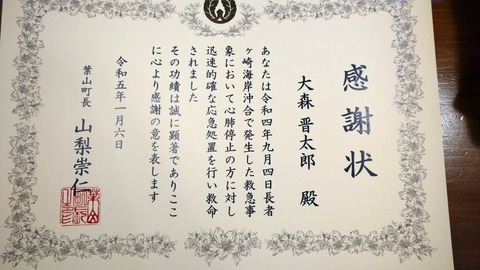 感謝状
大森晋太郎 殿
あなたは令和四年九月四日長者
ヶ崎海岸沖合で発生した救急事
象において心肺停止の方に対し
迅速的確な応急処置を行い救命
されました
その功績は誠に顕著でありここ
に心より感謝の意を表します
令和五年一月六日
葉山町長 山梨崇仁